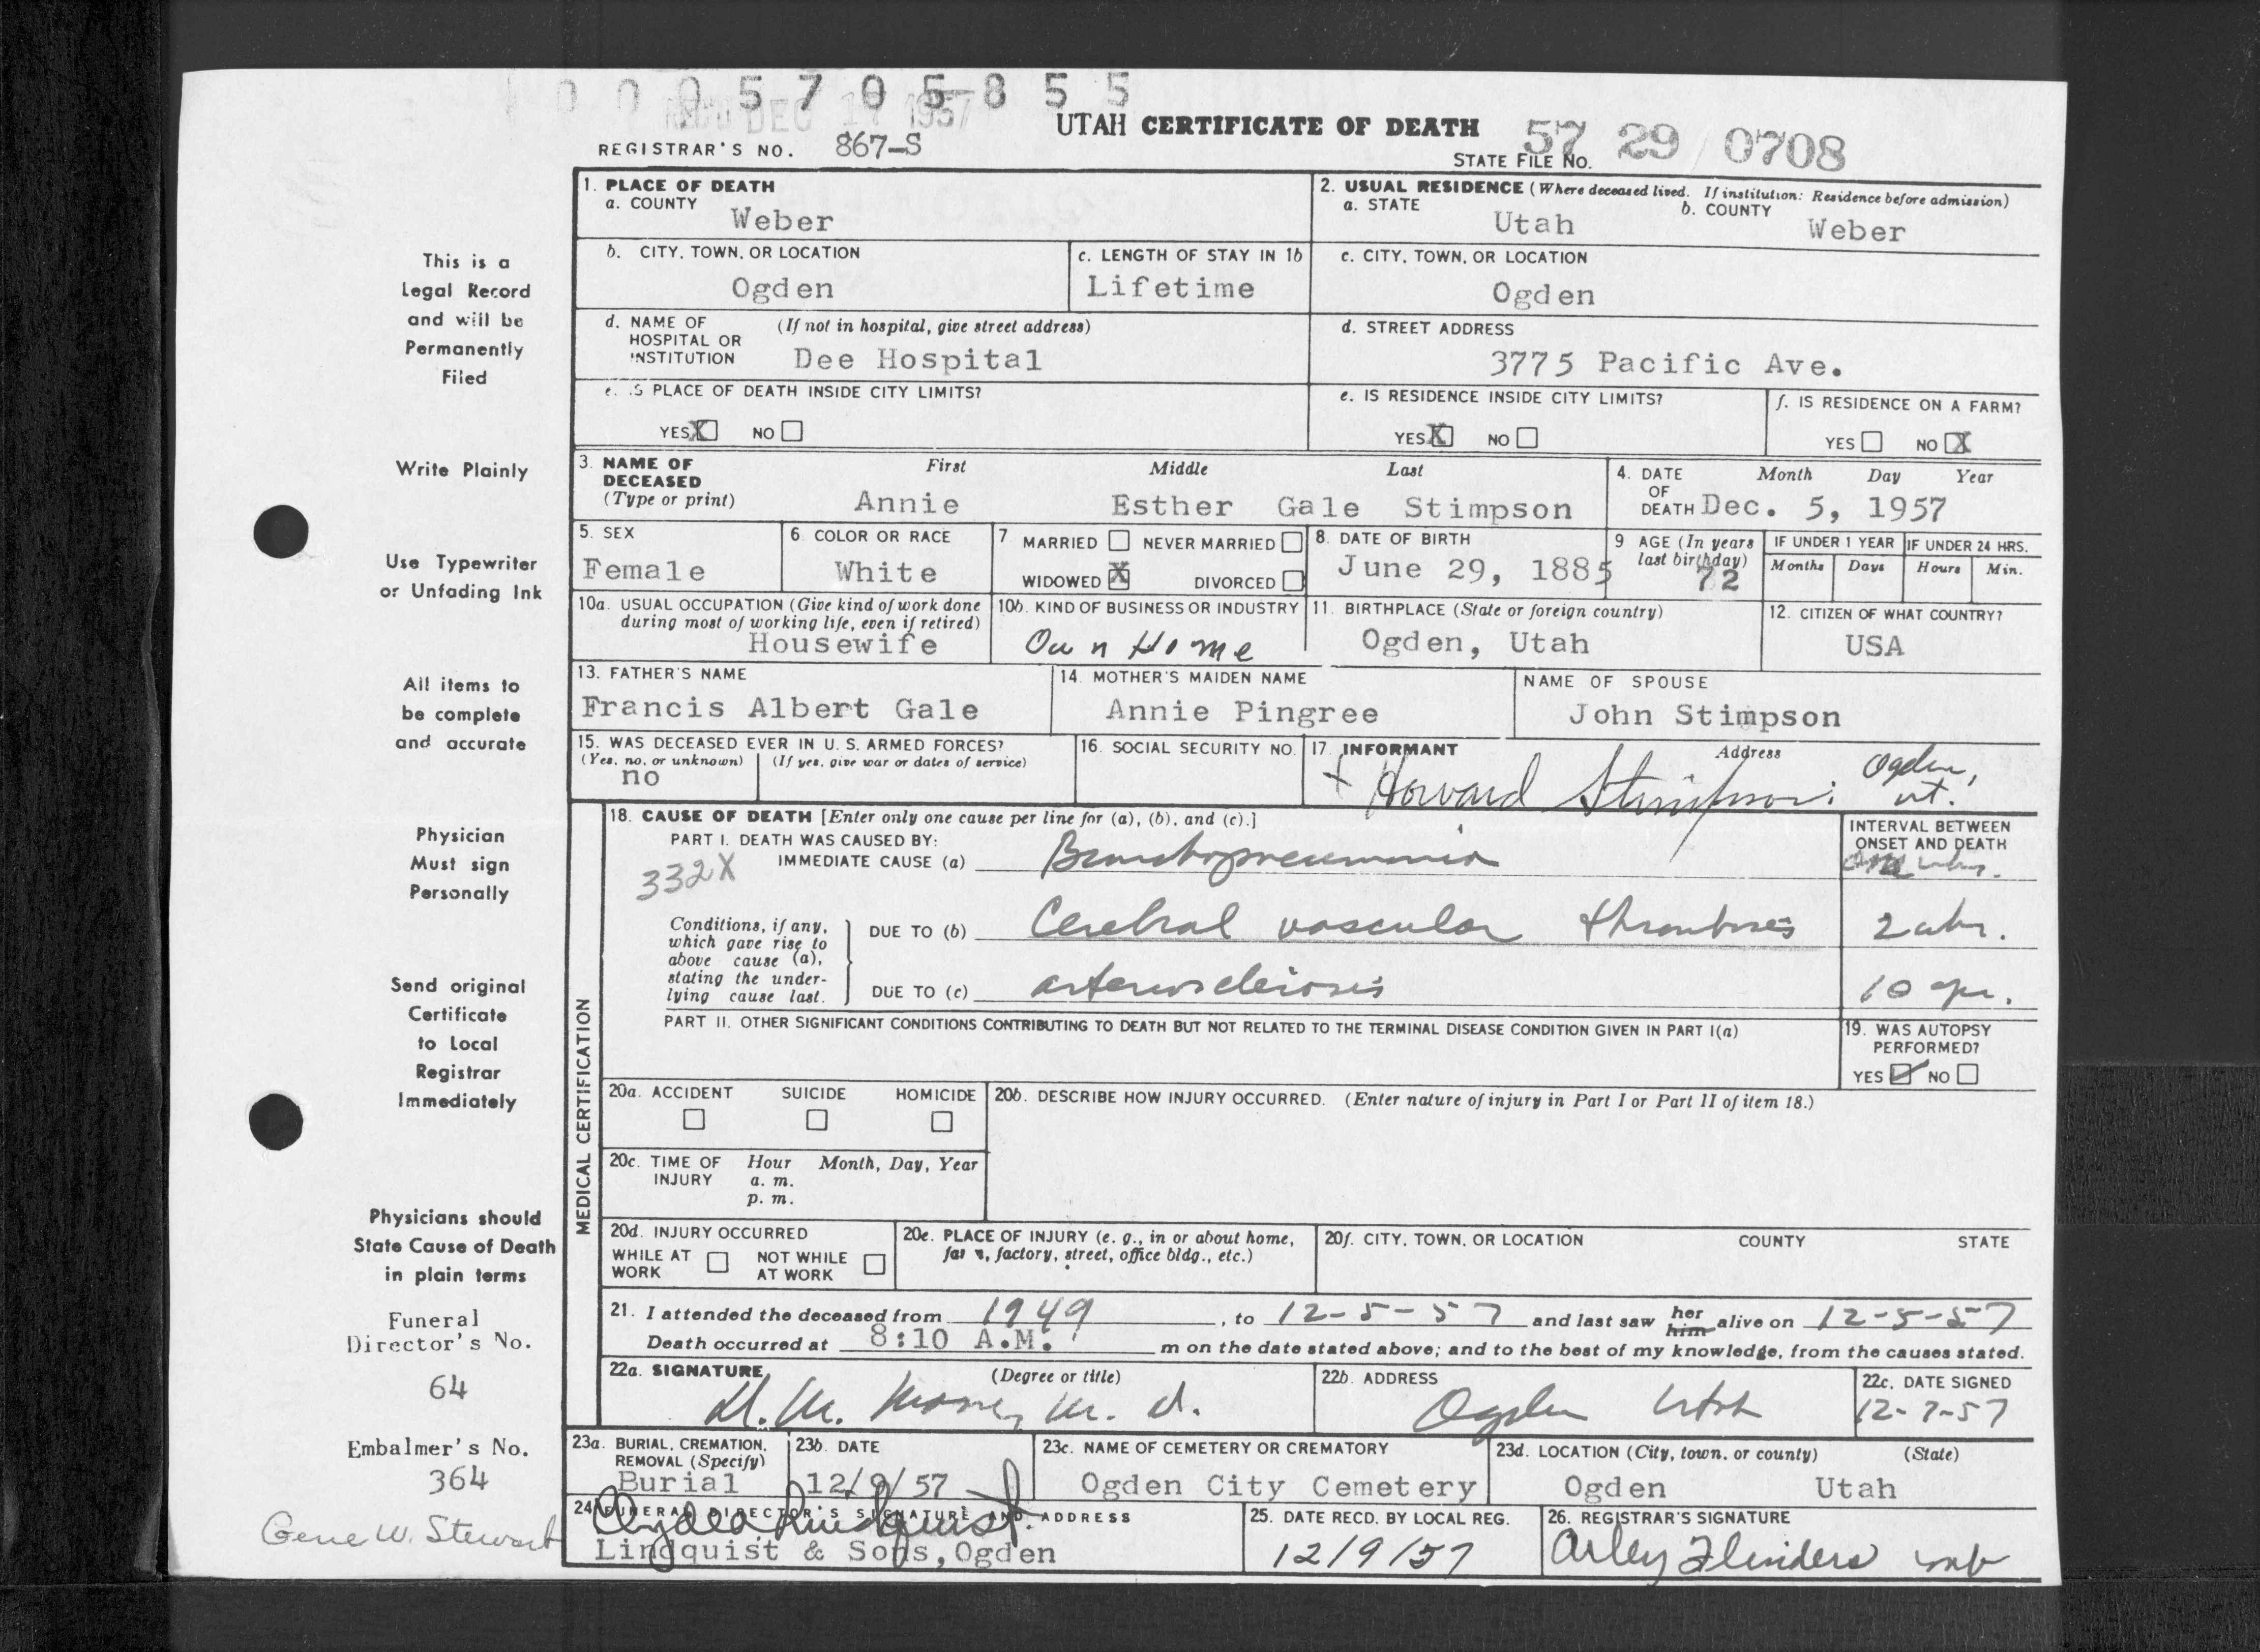 0005705855
REC'D DEC 17 1957
UTAH CERTIFICATE OF DEATH
REGISTRAR'S NO. 867-S
STATE FILE NO. 57 29 0708
1. PLACE OF DEATH
a. COUNTY Weber
2. USUAL RESIDENCE (Where deceased lived. If institution: Residence before admission)
a. STATE Utah b. COUNTY Weber
b. CITY, TOWN, OR LOCATION Ogden
c. LENGTH OF STAY IN 1b Lifetime
c. CITY, TOWN, OR LOCATION Ogden
d. NAME OF HOSPITAL OR INSTITUTION (If not in hospital, give street address) Dee Hospital
d. STREET ADDRESS 3775 Pacific Ave.
e. IS PLACE OF DEATH INSIDE CITY LIMITS?
YES X NO
e. IS RESIDENCE INSIDE CITY LIMITS?
YES X NO
f. IS RESIDENCE ON A FARM?
YES NO X
3. NAME OF DECEASED (Type or print) First Middle Last
Annie Esther Gale Stimpson
4. DATE OF DEATH Month Day Year
Dec. 5, 1957
5. SEX Female
6 COLOR OR RACE White
7 MARRIED NEVER MARRIED
WIDOWED X DIVORCED
8. DATE OF BIRTH June 29, 1885
9 AGE (In years last birthday) 72
IF UNDER 1 YEAR Months Days
IF UNDER 24 HRS. Hours Min.
10a. USUAL OCCUPATION (Give kind of work done during most of working life, even if retired) Housewife
10b. KIND OF BUSINESS OR INDUSTRY Own Home
11. BIRTHPLACE (State or foreign country) Ogden, Utah
12. CITIZEN OF WHAT COUNTRY? USA
13. FATHER'S NAME Francis Albert Gale
14. MOTHER'S MAIDEN NAME Annie Pingree
NAME OF SPOUSE John Stimpson
15. WAS DECEASED EVER IN U. S. ARMED FORCES?
(Yes, no, or unknown) (If yes, give war or dates of service)
no
16. SOCIAL SECURITY NO.
17. INFORMANT Address
Howard Stimpson Ogden, Ut.
MEDICAL CERTIFICATION
18. CAUSE OF DEATH [Enter only one cause per line for (a), (b), and (c).]
INTERVAL BETWEEN ONSET AND DEATH
PART I. DEATH WAS CAUSED BY:
IMMEDIATE CAUSE (a) Bronchopneumonia
332X
Conditions, if any, which gave rise to above cause (a), stating the underlying cause last.
DUE TO (b) Cerebral vascular thrombosis
DUE TO (c) arteriosclerosis 10 yr.
PART II. OTHER SIGNIFICANT CONDITIONS CONTRIBUTING TO DEATH BUT NOT RELATED TO THE TERMINAL DISEASE CONDITION GIVEN IN PART I(a)
19. WAS AUTOPSY PERFORMED?
YES ✓ NO
20a. ACCIDENT SUICIDE HOMICIDE
20b. DESCRIBE HOW INJURY OCCURRED. (Enter nature of injury in Part I or Part II of item 18.)
20c. TIME OF INJURY Hour Month, Day, Year
a. m.
p. m.
20d. INJURY OCCURRED
WHILE AT WORK NOT WHILE AT WORK
20e. PLACE OF INJURY (e. g., in or about home, farm, factory, street, office bldg., etc.)
20f. CITY, TOWN, OR LOCATION COUNTY STATE
21. I attended the deceased from 1949, to 12-5-57 and last saw her him alive on 12-5-57
Death occurred at 8:10 A.M. m on the date stated above; and to the best of my knowledge, from the causes stated.
22a. SIGNATURE (Degree or title)
M. D.
22b. ADDRESS Ogden Utah
22c. DATE SIGNED 12-7-57
23a. BURIAL, CREMATION, REMOVAL (Specify) Burial
23b. DATE 12/9/57
23c. NAME OF CEMETERY OR CREMATORY Ogden City Cemetery
23d. LOCATION (City, town, or county) (State)
Ogden Utah
24 FUNERAL DIRECTOR'S SIGNATURE AND ADDRESS
Lindquist & Sons, Ogden
25. DATE RECD. BY LOCAL REG. 12/9/57
26. REGISTRAR'S SIGNATURE Arley Flinders
This is a
Legal Record
and will be
Permanently
Filed
Write Plainly
Use Typewriter
or Unfading Ink
All items to
be complete
and accurate
Physician
Must sign
Personally
Send original
Certificate
to Local
Registrar
Immediately
Physicians should
State Cause of Death
in plain terms
Funeral
Director's No.
64
Embalmer's No.
364
Gene W. Stewart